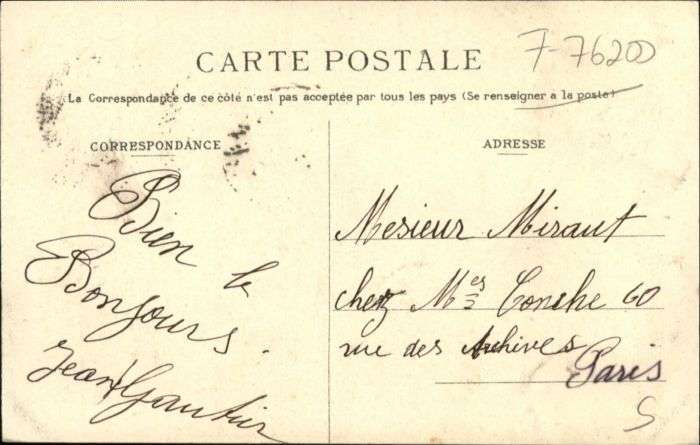 CARTE POSTALE
7-76200
La Correspondance de ce côté n'est pas acceptée par tous les pays (Se renseigner a la poste)
CORRESPONDANCE
Bien le
Bonjours.
Jean Gautier
ADRESSE
Mesieur Miraut
chez Mes Conche 60
rue des Archives
Paris